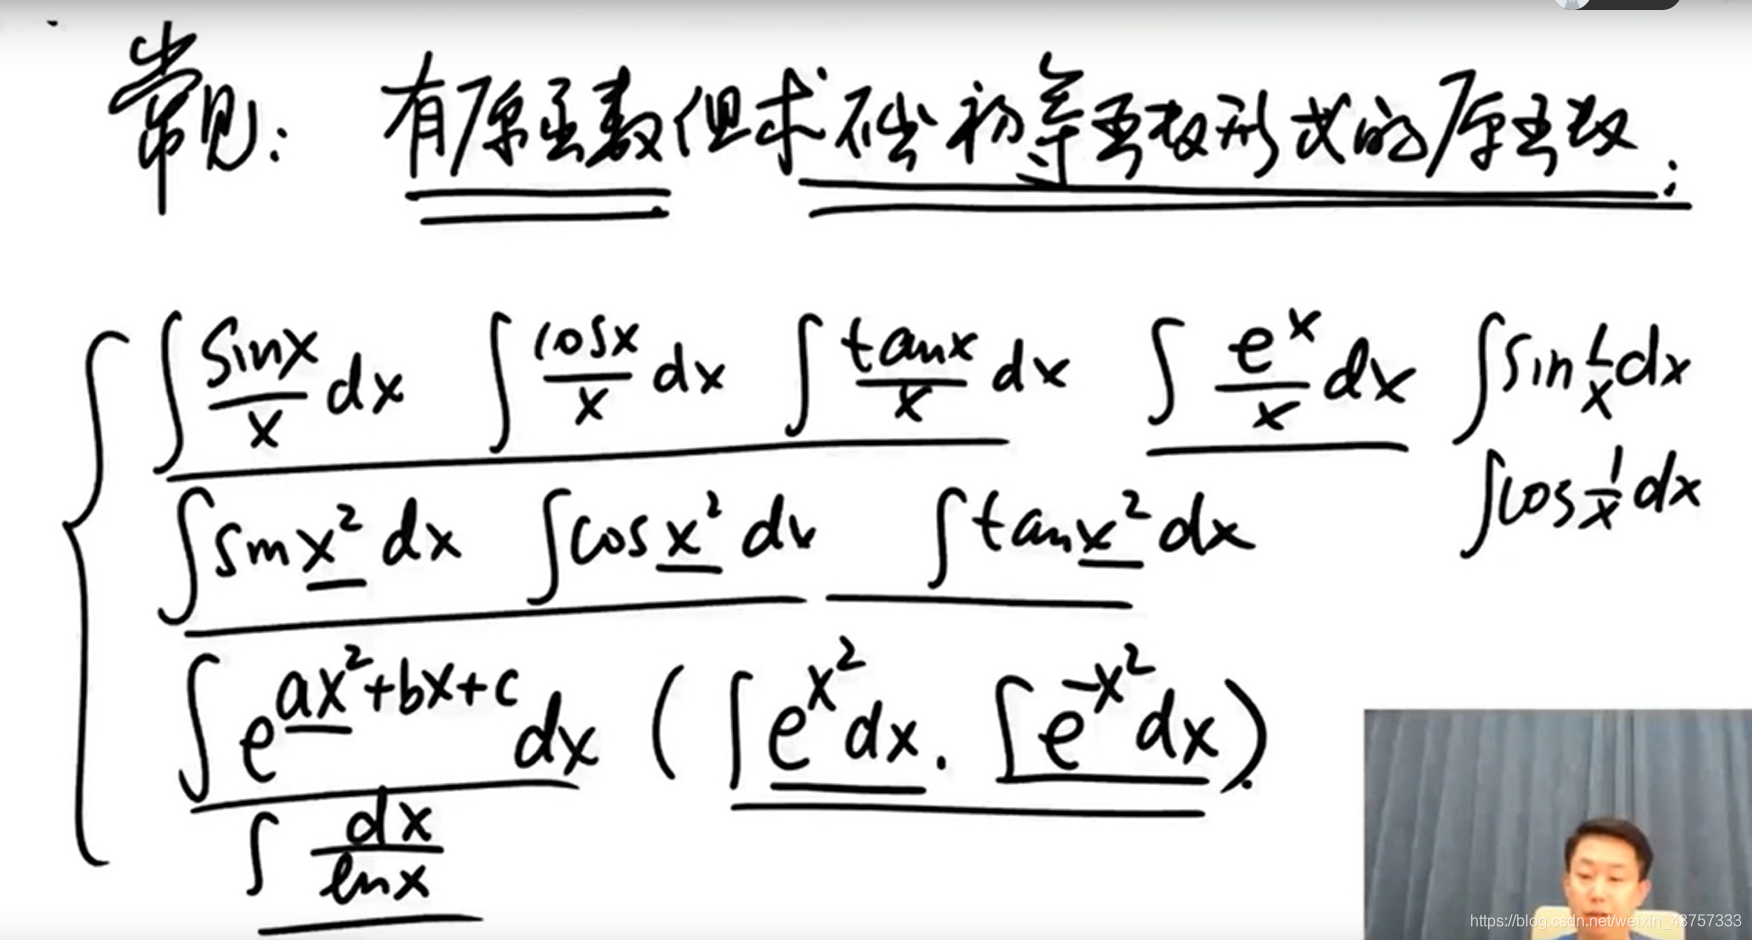 常见: 有原函数但求不出初等函数形式的原函数:
∫ sinx/x dx ∫ cosx/x dx ∫ tanx/x dx ∫ e^x/x dx ∫ sin 1/x dx
∫ cos 1/x dx
∫ sin x² dx ∫ cos x² dx ∫ tan x² dx
∫ e^(ax²+bx+c) dx ( ∫ e^(x²) dx. ∫ e^(-x²) dx ).
∫ dx/lnx
https://blog.csdn.net/weixin_43757333